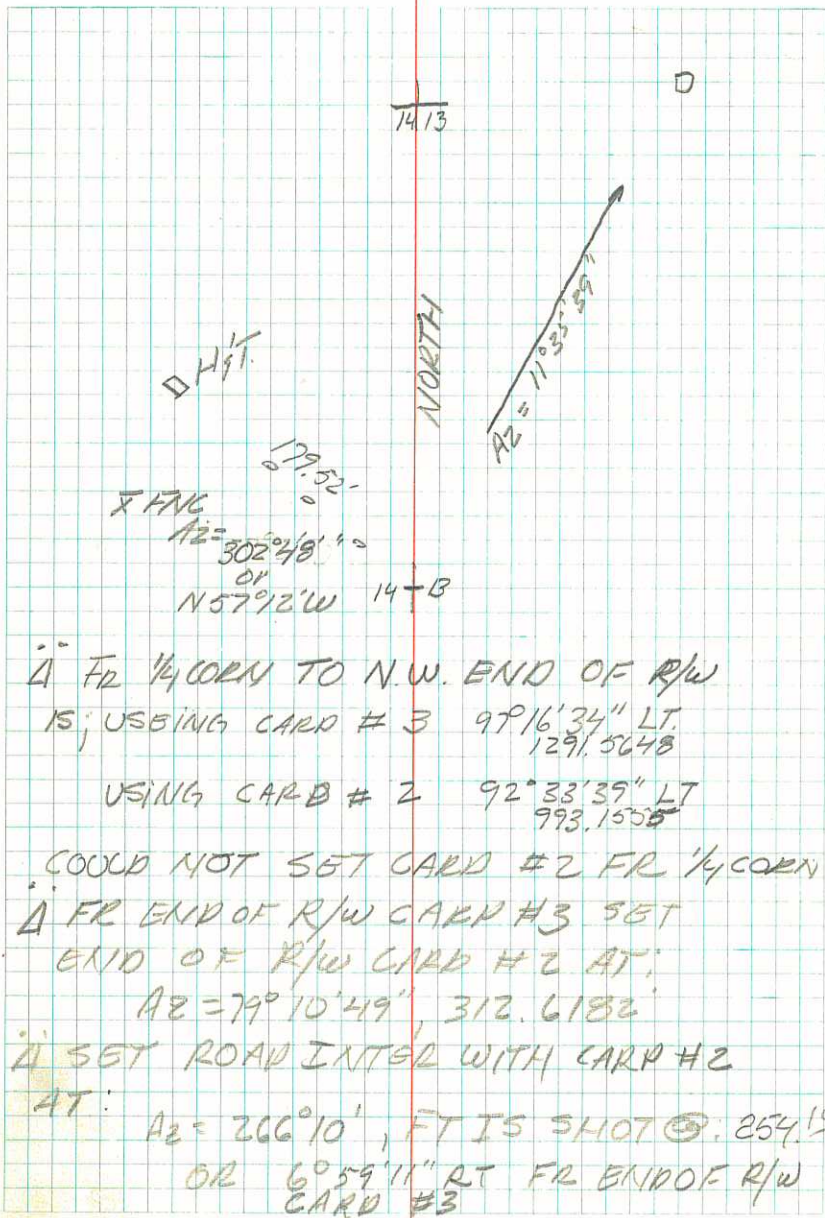 14 13
H&T.
NORTH
AZ = 11°35'39"
179.52'
X FNC
AZ=
302°48'"
or
N57°12'W
14 13
Δ FR 1/4 CORN TO N.W. END OF R/W
IS; USEING CARD # 3 97°16'34" LT.
1291.5648
USING CARD # 2 92°33'39" LT
993.1555
COULD NOT SET CARD #2 FR 1/4 CORN
Δ FR END OF R/W CARD #3 SET
END OF R/W CARD #2 AT;
AZ = 79°10'49", 312.6182'
Δ SET ROAD INTER WITH CARD #2
AT:
AZ = 266°10', FT IS SHOT @: 254.
OR 6°59'11" RT FR END OF R/W
CARD #3